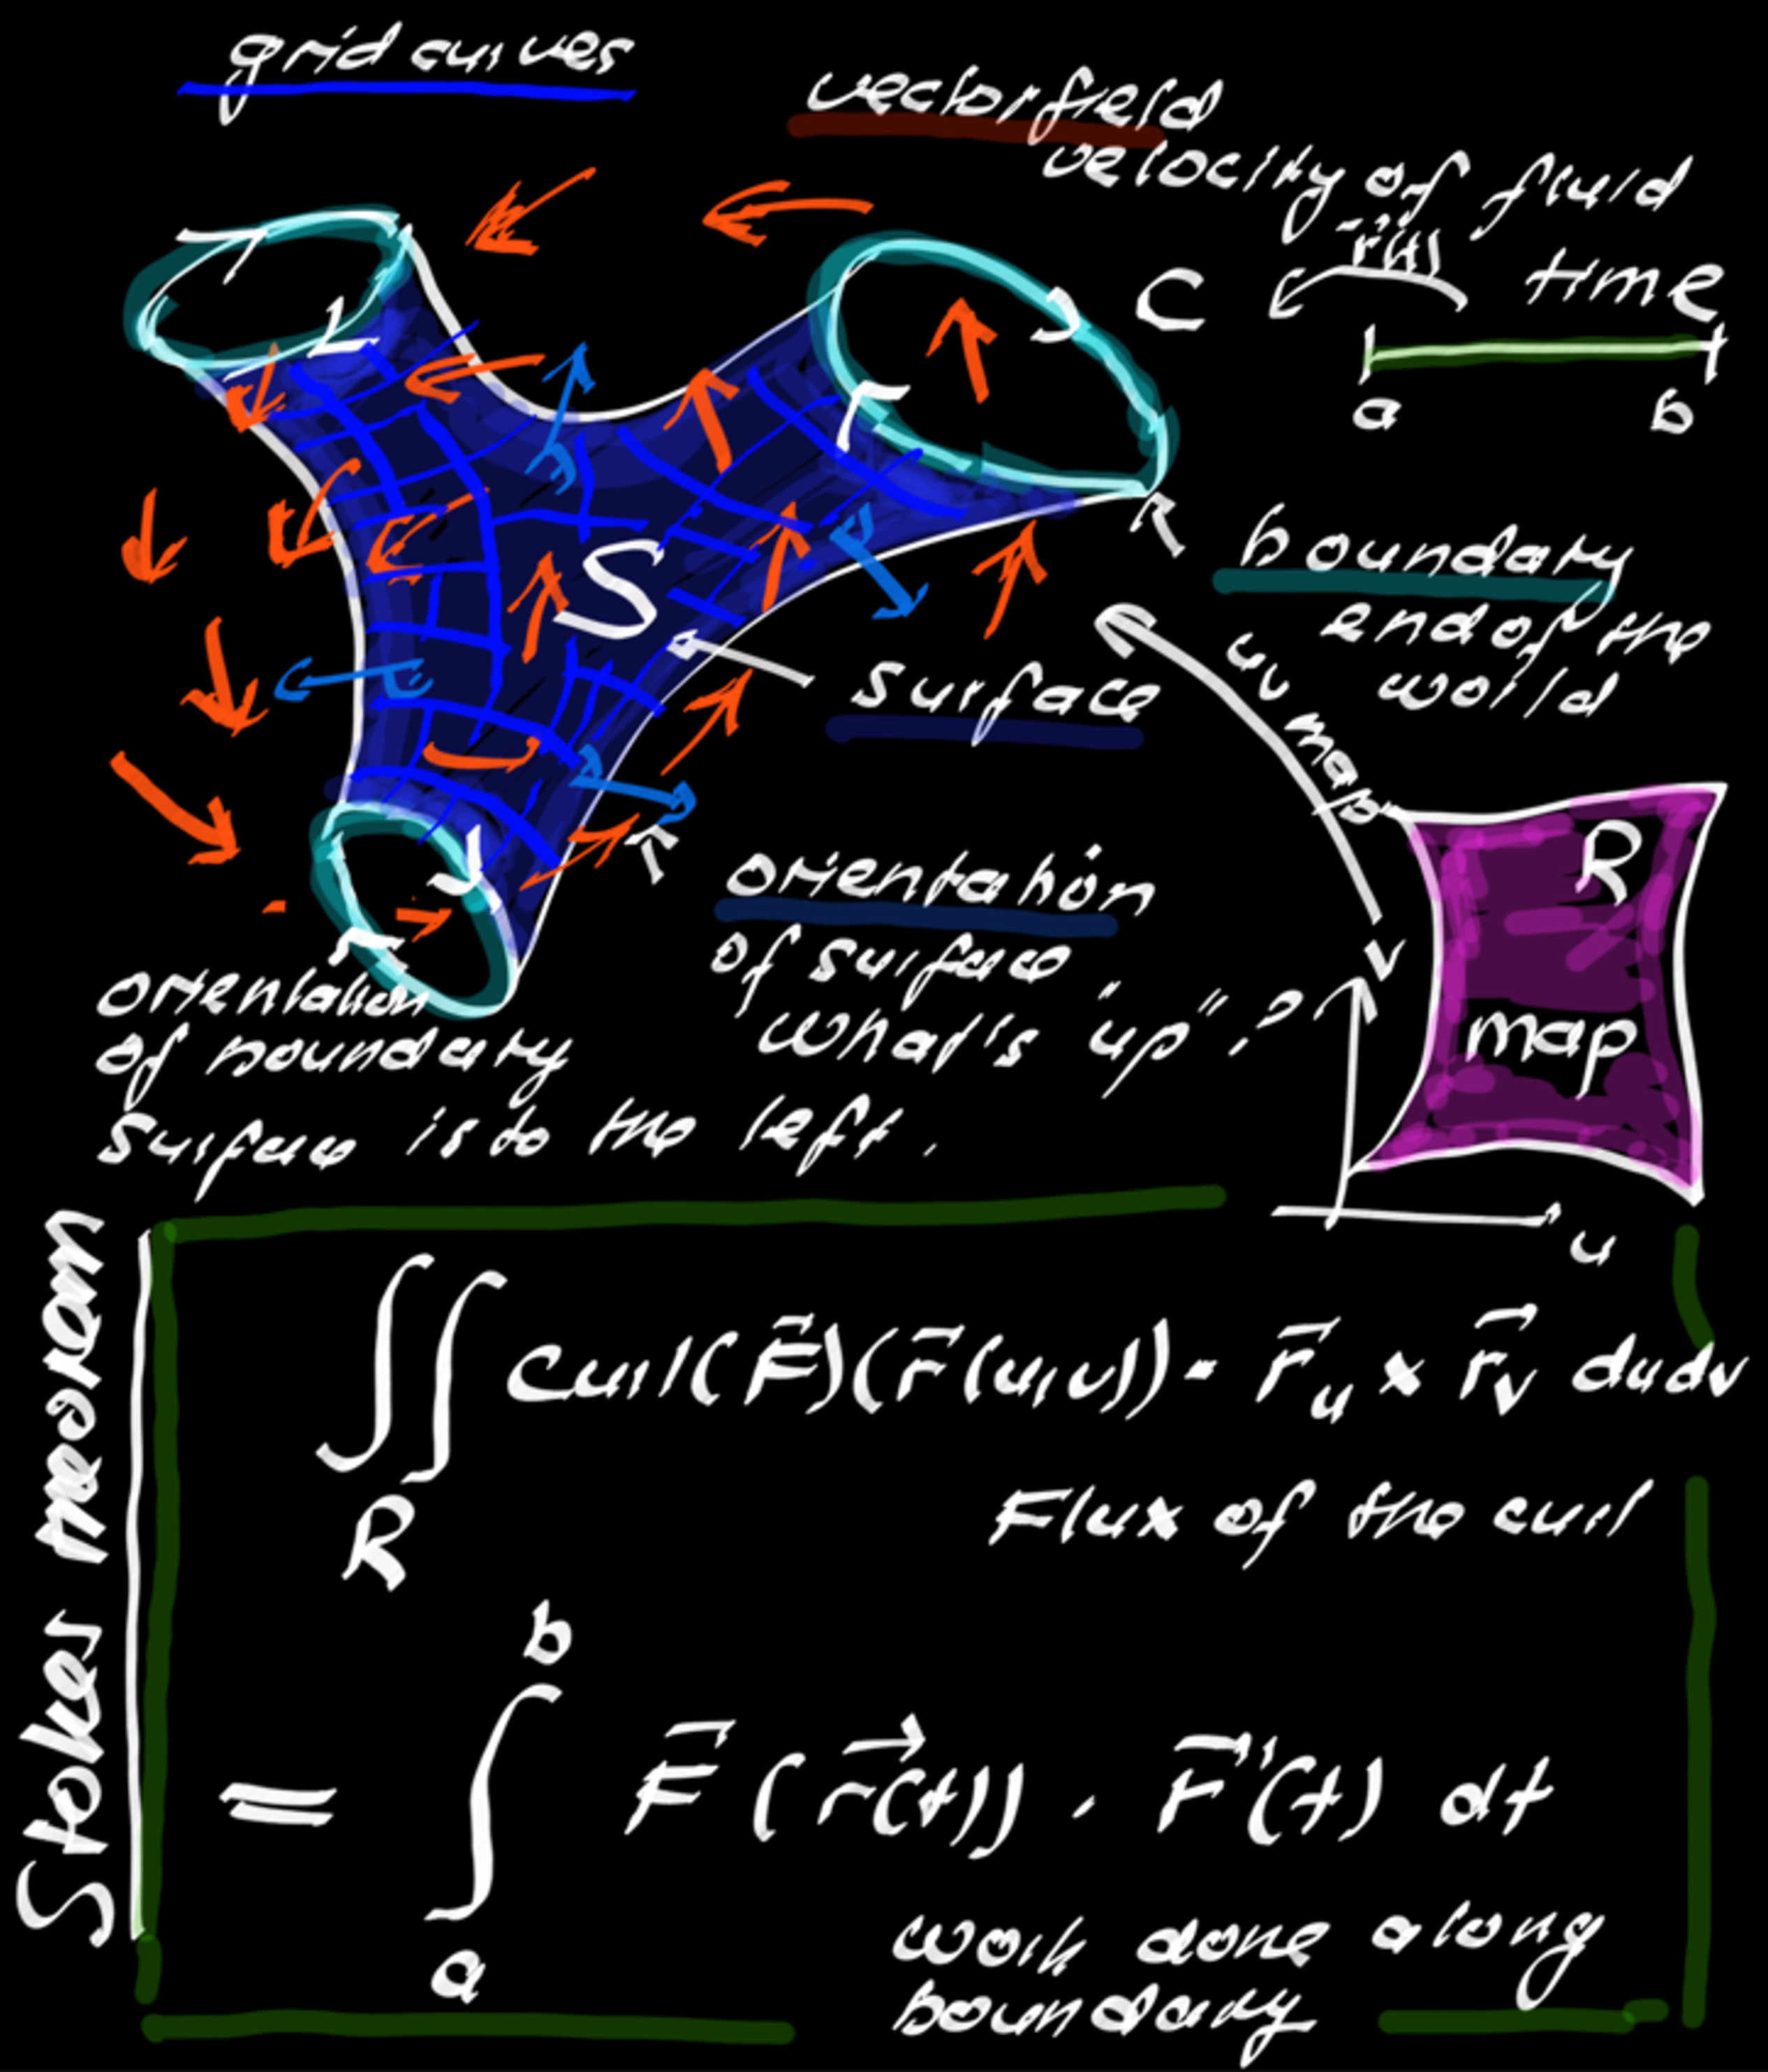 grid curves
vectorfield
velocity of fluid
r(t)
C
time
a
b
S
boundary
end of the
world
surface
uv map
R
map
v
u
orientation
of surface,
what's "up"?
orientation
of boundary
surface is to the left.
Stokes theorem
∬ curl(F⃗)(r⃗(u,v)) · r⃗ᵤ × r⃗ᵥ dudv
R
Flux of the curl
b
= ∫ F⃗(r⃗(t)) · r⃗'(t) dt
a
work done along
boundary